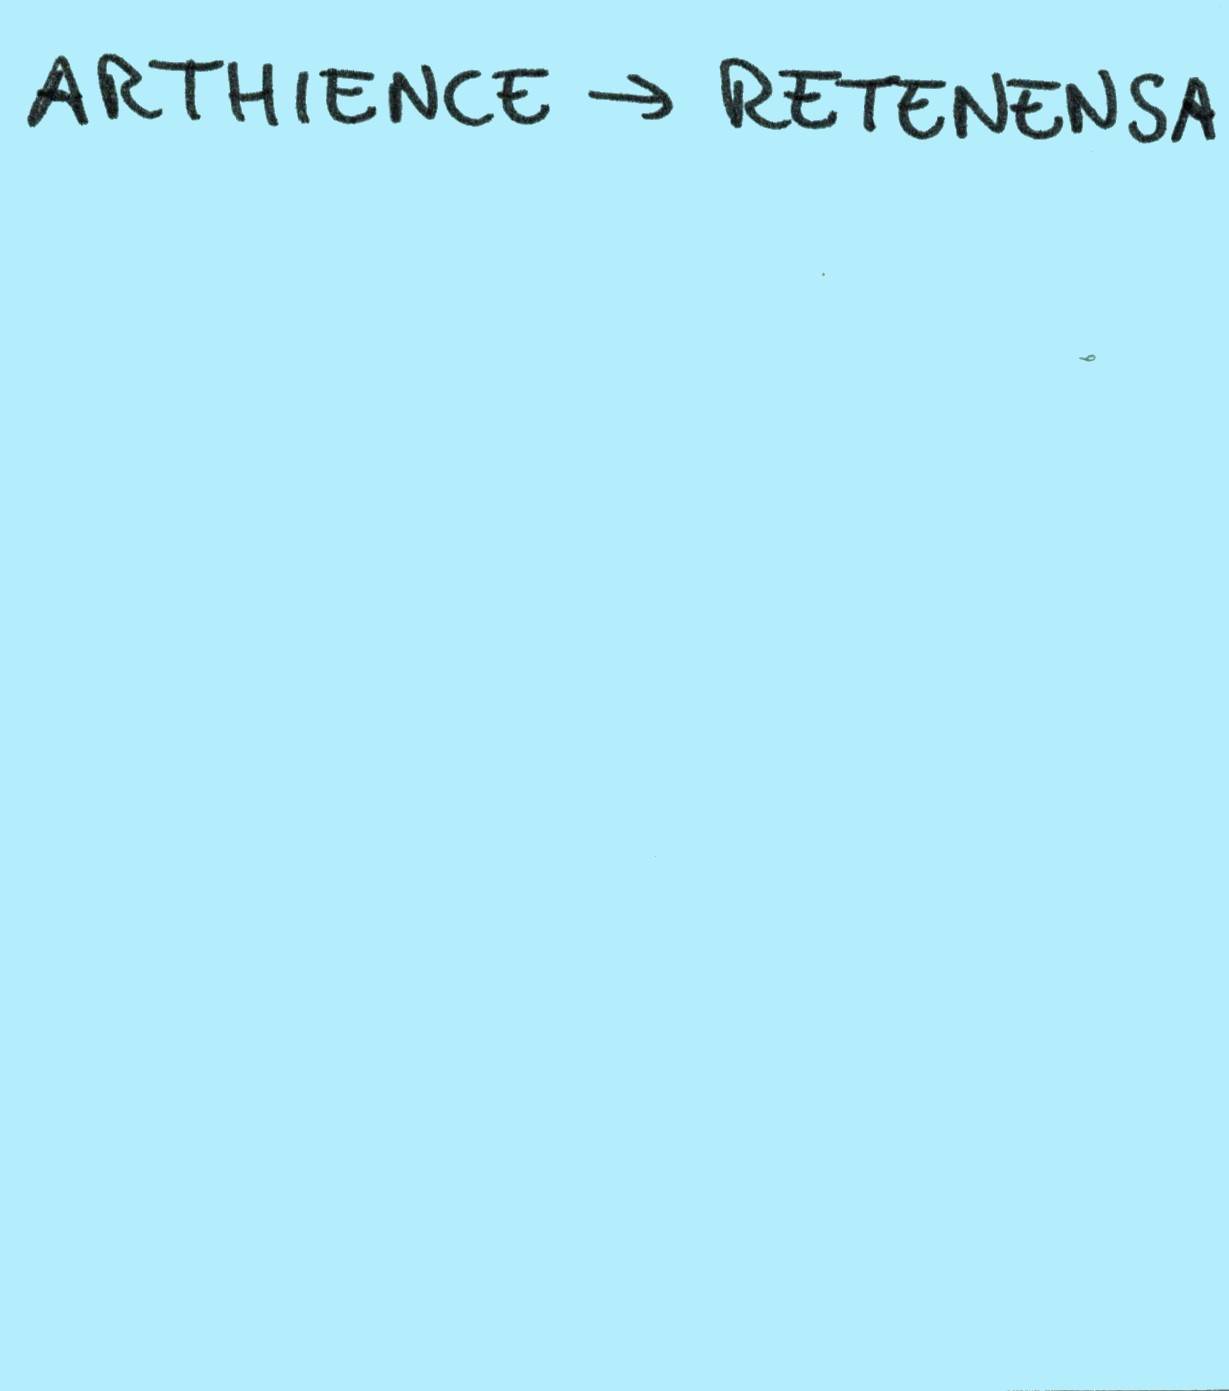 ARTHIENCE → RETENENSA